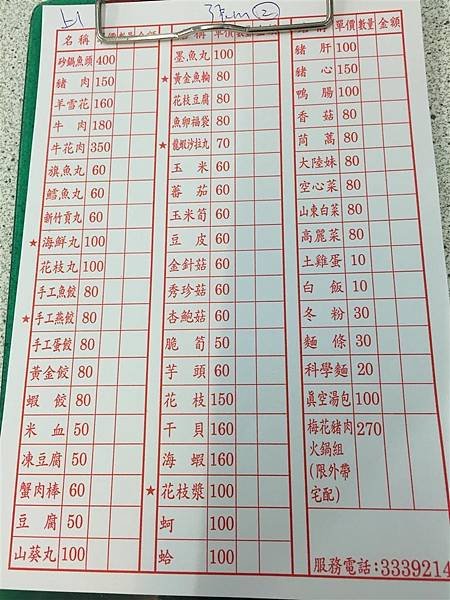 名稱 單價 數量 金額
砂鍋魚頭 400
豬肉 150
羊雪花 160
牛肉 180
牛花肉 350
旗魚丸 60
鱈魚丸 60
新竹貢丸 60
★海鮮丸 100
花枝丸 100
手工魚餃 80
★手工燕餃 80
手工蛋餃 80
黃金餃 80
蝦餃 80
米血 50
凍豆腐 50
蟹肉棒 60
豆腐 50
山葵丸 100
稱 單價 數量 金額
墨魚丸 100
★黃金魚輪 80
花枝豆腐 80
魚卵福袋 80
★龍蝦沙拉丸 70
玉米 60
蕃茄 60
玉米筍 60
豆皮 60
金針菇 60
秀珍菇 60
杏鮑菇 60
脆筍 50
芋頭 60
花枝 150
干貝 160
海蝦 160
★花枝漿 100
蚵 100
蛤 100
單價 數量 金額
豬肝 100
豬心 150
鴨腸 100
香菇 80
茼萵 80
大陸妹 80
空心菜 80
山東白菜 80
高麗菜 80
土雞蛋 10
白飯 10
冬粉 30
麵條 30
科學麵 20
真空湯包 100
梅花豬肉 270
火鍋組
(限外帶
宅配)
服務電話:3339214